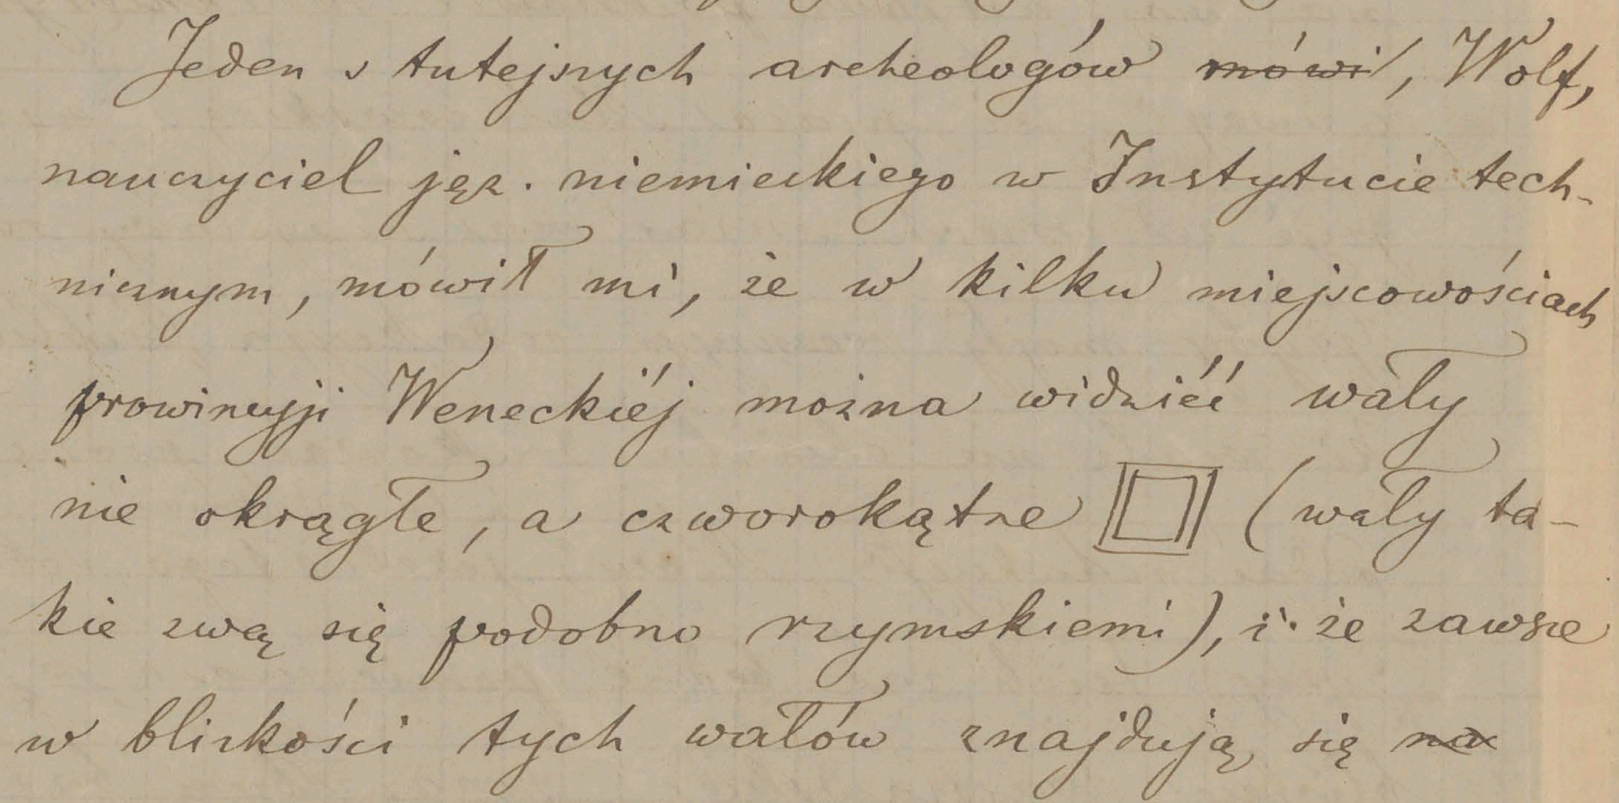 Jeden s tutejszych archeologów mówi, Wolf,
nauczyciel jęz. niemieckiego w Instytucie tech-
nicznym, mówił mi, że w kilku miejscowościach
prowincyji Weneckiéj można widziéć wały
nie okrągłe, a czworokątne (wały ta-
kie zwą się podobno rzymskiemi), i że zawsze
w blizkości tych wałów znajdują się na